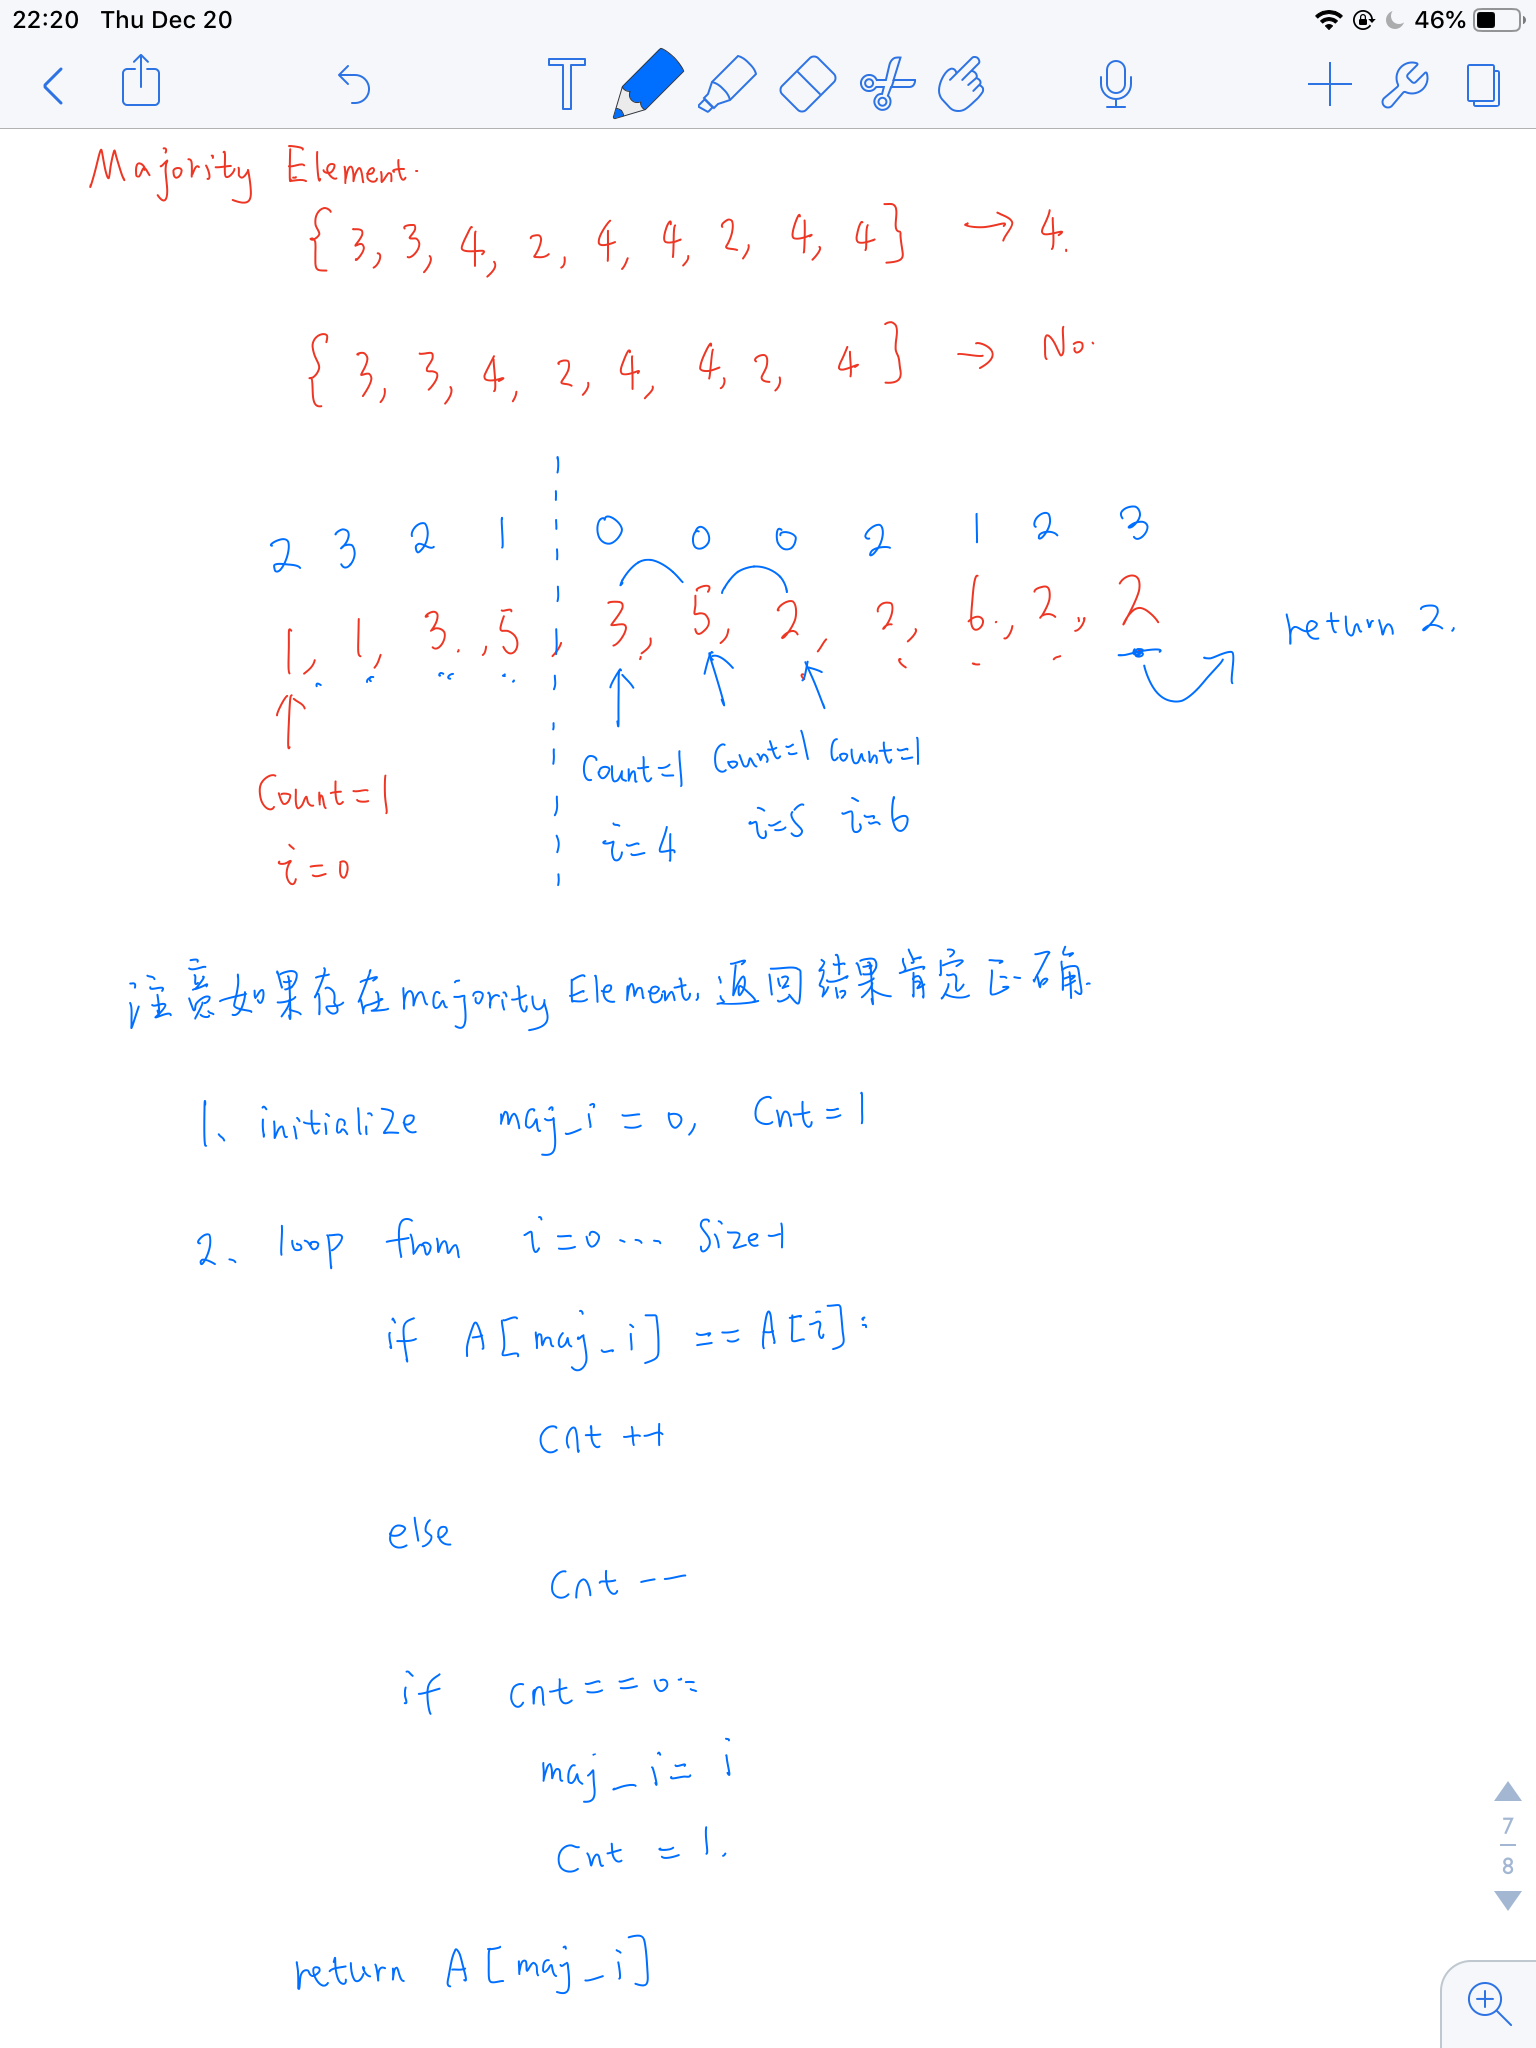 22:20 Thu Dec 20 46%
Majority Element.
{ 3, 3, 4, 2, 4, 4, 2, 4, 4 } → 4.
{ 3, 3, 4, 2, 4, 4, 2, 4 } → No.
2 3 2 1 0 0 0 2 1 2 3
1, 1, 3, 5, 3, 5, 2, 2, 6, 2, 2
return 2.
Count=1 Count=1 Count=1 Count=1
i=0 i=4 i=5 i=6
注意如果存在majority Element, 返回结果肯定正确.
1、initialize maj_i = 0, Cnt = 1
2、loop from i=0 ... Size-1
if A[maj_i] == A[i]:
Cnt ++
else
Cnt --
if cnt==0:
maj_i= i
Cnt = 1.
return A[maj_i]
7
8